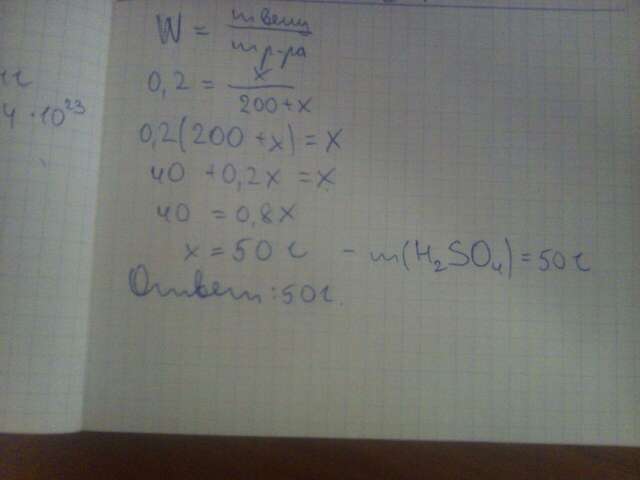 W = m вещ / m р-ра
0,2 = x / 200+x
0,2(200+x)=x
40+0,2x=x
40=0,8x
x=50г - m(H₂SO₄)=50г
Ответ:50г.
4·10²³